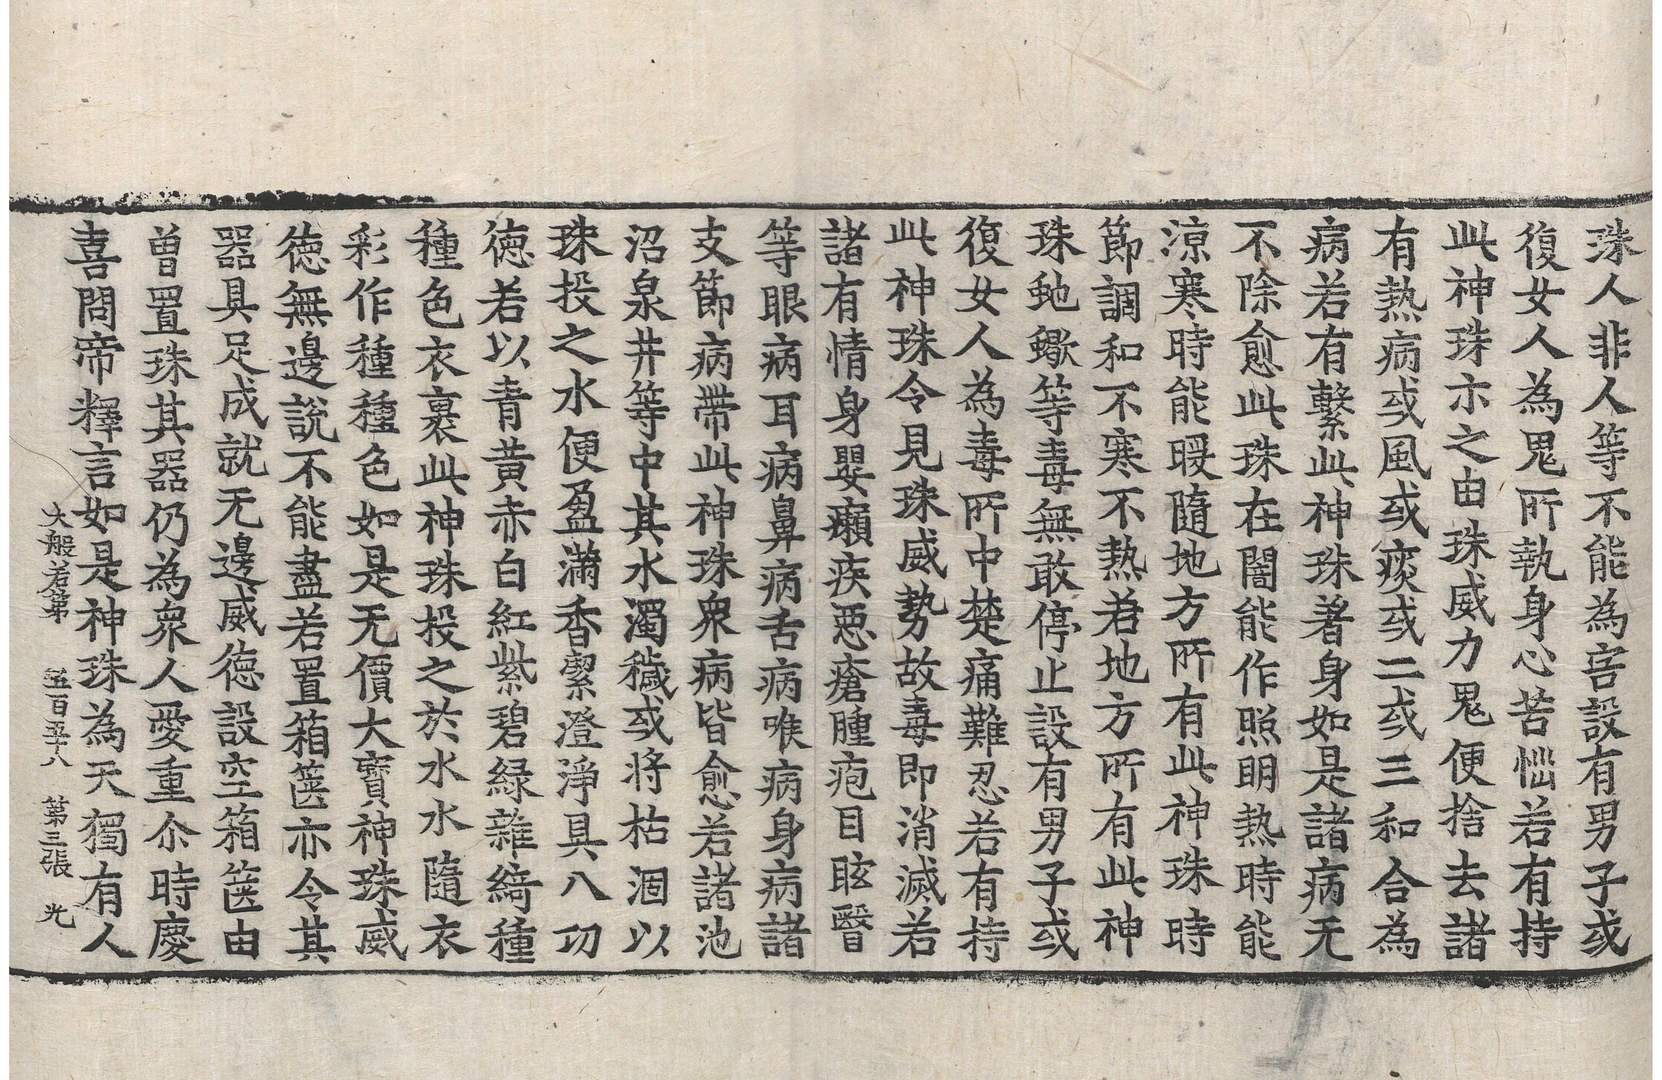 珠人非人等不能為害設有男子或
復女人為鬼所執身心苦惱若有持
此神珠示之由珠威力鬼便捨去諸
有熱病或風或痰或二或三和合為
病若有繫此神珠著身如是諸病无
不除愈此珠在闇能作照明熱時能
涼寒時能暖隨地方所有此神珠時
節調和不寒不熱若地方所有此神
珠虵蠍等毒無敢停止設有男子或
復女人為毒所中楚痛難忍若有持
此神珠令見珠威勢故毒即消滅若
諸有情身嬰癩疾惡瘡腫疱目眩瞖
等眼病耳病鼻病舌病喉病身病諸
支節病帶此神珠衆病皆愈若諸池
沼泉井等中其水濁穢或將枯涸以
珠投之水便盈滿香潔澄淨具八功
德若以青黃赤白紅紫碧綠雜綺種
種色衣裹此神珠投之於水水隨衣
彩作種種色如是无價大寶神珠威
德無邊說不能盡若置箱篋亦令其
器具足成就无邊威德設空箱篋由
曾置珠其器仍為衆人愛重尒時慶
喜問帝釋言如是神珠為天獨有人
大般若第 五百五十八 第三張 光